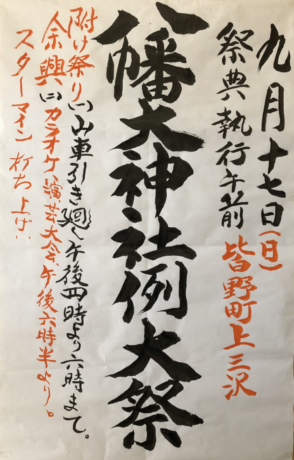 九月十七日(日)
祭典執行午前 皆野町上三沢
八幡大神社例大祭
附け祭り(一)山車引き廻し午後四時より六時まで。
余興(二)カラオケ演芸大会午後六時半より。
スターマイン打ち上げ